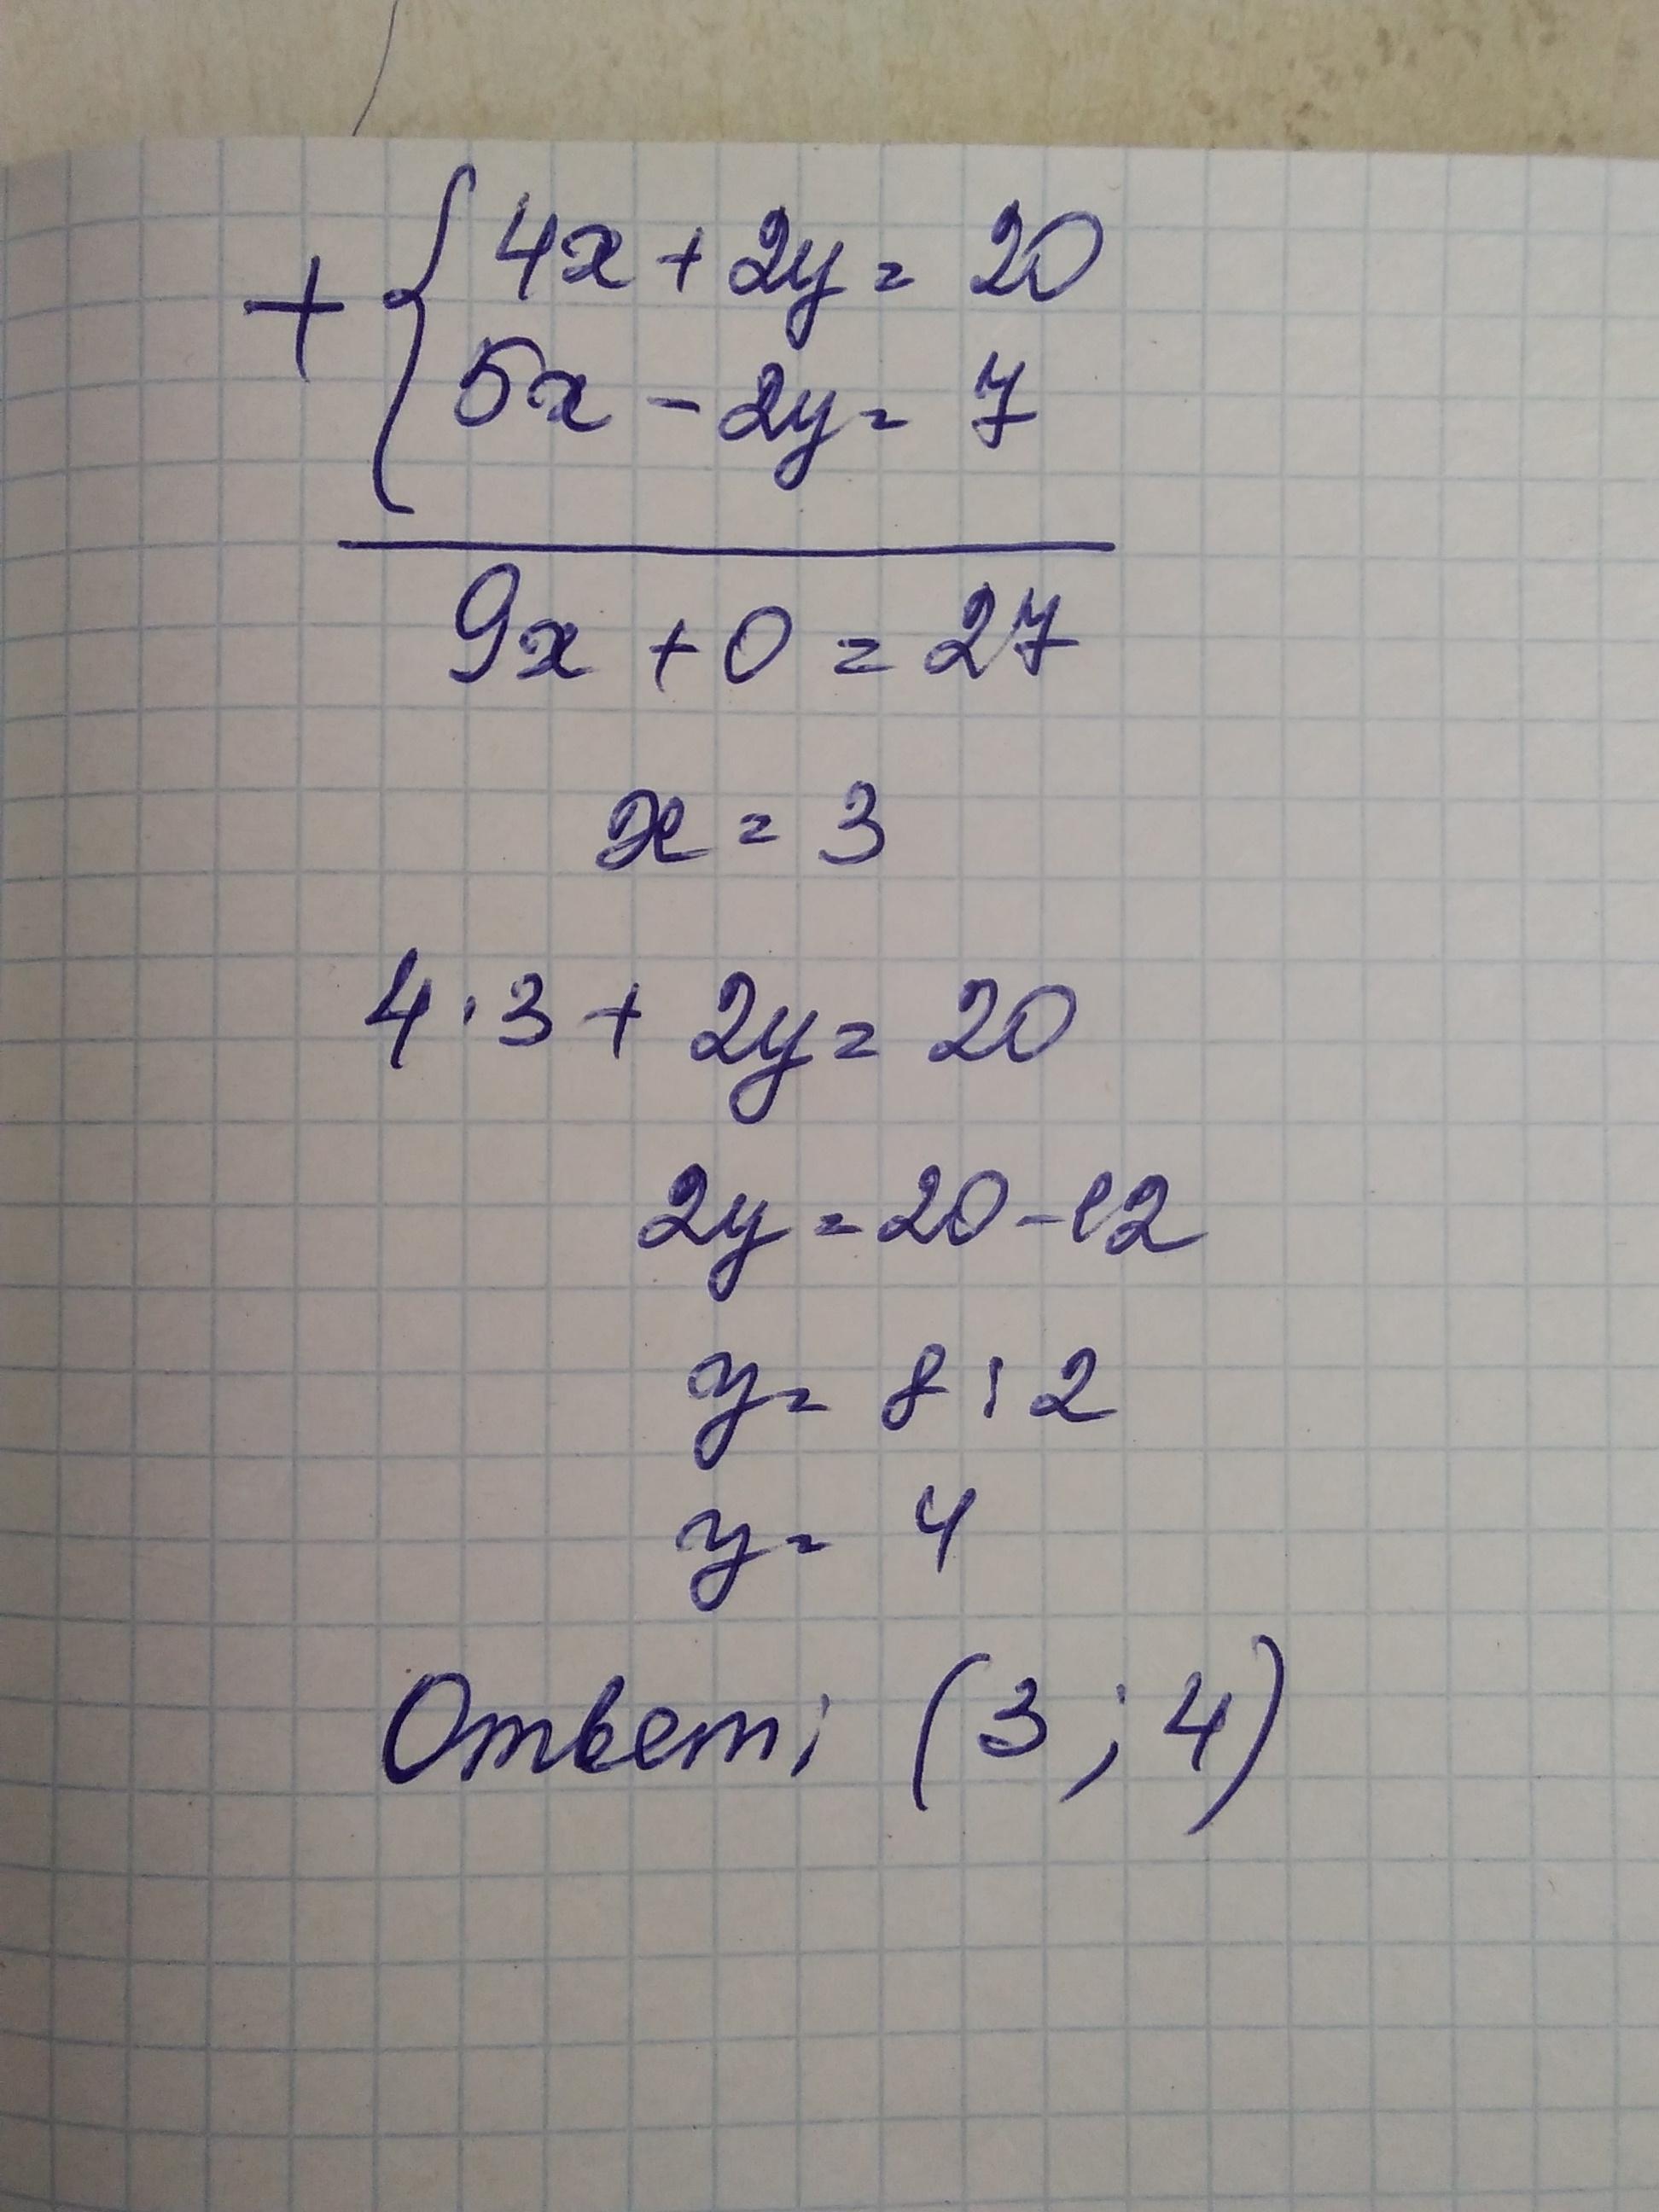 + { 4x + 2y = 20
5x - 2y = 7
9x + 0 = 27
x = 3
4 · 3 + 2y = 20
2y = 20 - 12
y = 8 : 2
y = 4
Ответ: (3 ; 4)